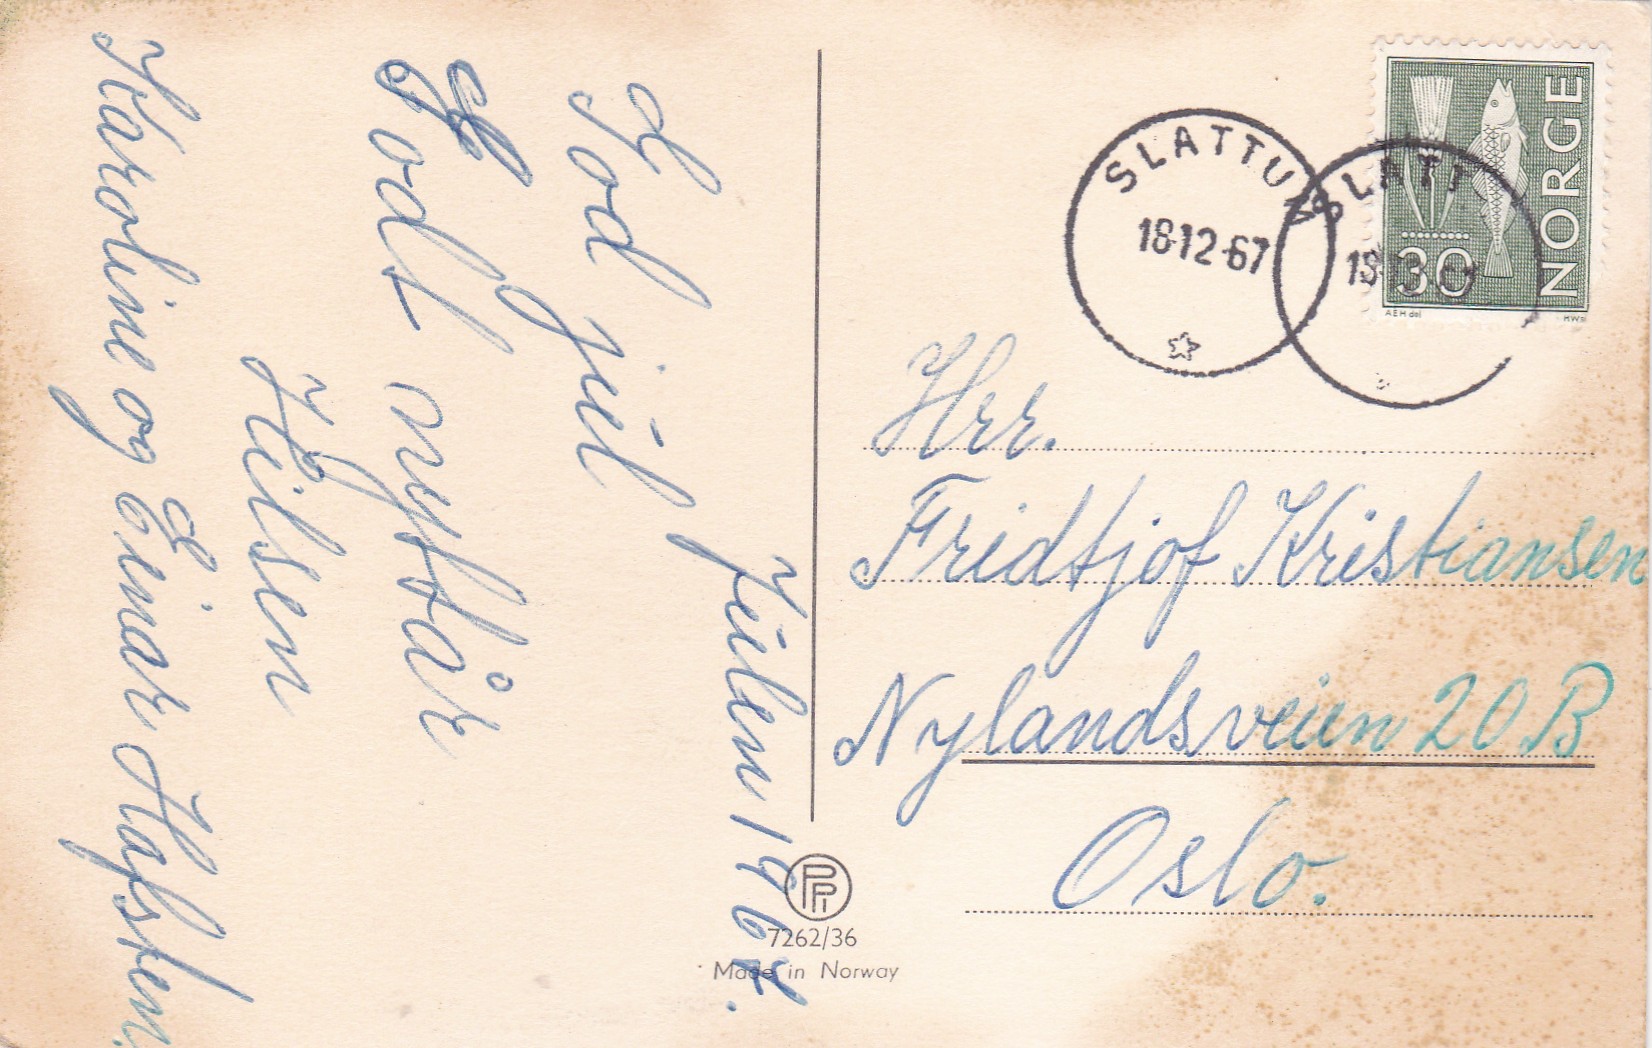 Julen 1967.
God jul
Godt nyttår
Hilsen
Karoline og Einar Hafsten.
SLATTUM
18-12-67
SLATT
18
NORGE
30
AEH del
HW sc
Hrr.
Fridtjof Kristiansen
Nylandsveien 20 B
Oslo.
PPI
7262/36
Made in Norway